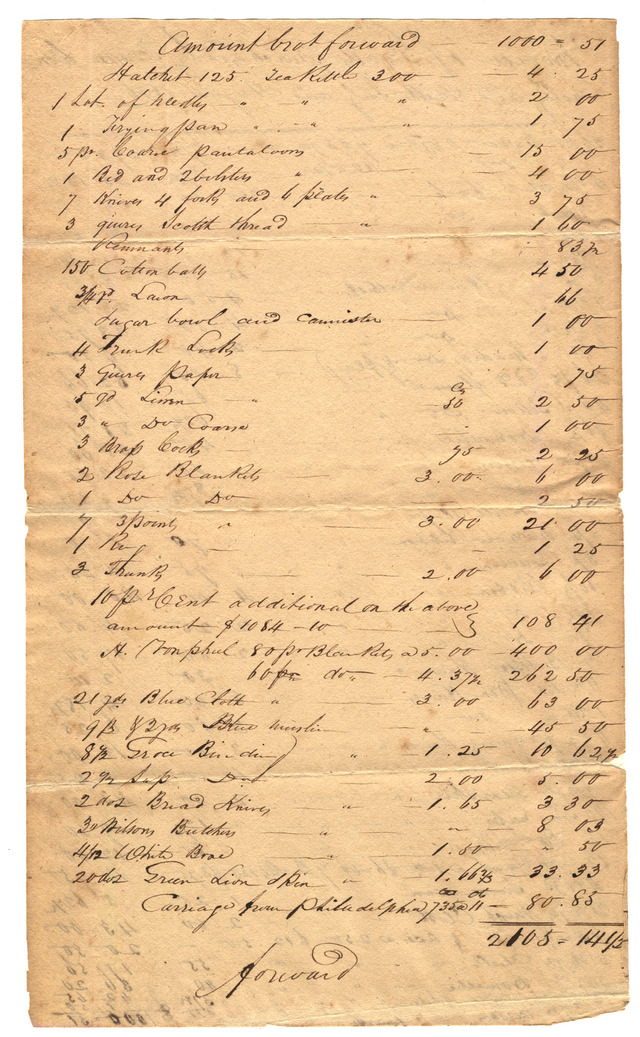 Amount brot forward — 1000 = 51
Hatchet 125. Tea Kettle 300 — 4. 25
1 Lot. of needles " " " 2 00
1 Frying pan " " " 1 75
5 pr. Coarse pantaloons — 15 00
1 Bed and 2 bolsters " — 4 00
7 Knives 4 forks and 6 plates " 3 75
3 quires Scotch thread " 1 60
Remnants 83½
150 Cotton balls 4 50
3/4 yd. Lawn 66
Sugar bowl and cannister — 1 00
4 Trunk Locks — 1 00
3 Quires paper 75
5 yd Linen — " 50 2 50
3 " Do Coarse — 1 00
3 Brass Cocks — 75 2 25
2 Rose Blankets — 3.00 6 00
1 Do Do — 2 50
7 3 points " — 3.00 21 00
1 — 1 25
3 Trunks — 2.00 6 00
10 pr Cent additional on the above
amount $1084-10 — } 108 41
A. Vonphul 80 pr Blankets a 5.00 — 400 00
60 pr do — 4.37½ 262 50
21 yds Blue Cloth " — 3.00 63 00
9 ps & 2 yds Blue muslin " 45 50
8½ Groce Binding " 1.25 10 62½
2½ Sup. Do — 2.00 5.00
2 doz Bread Knives — " 1.65 3.30
3 " Wilsons Butchers " " 8 03
4/12 White Bone " 1.50 " 50
20 doz Green Lion Skin " 1.66⅔ — 33.33
Carriage from Philadelphia 735 a 11 — 80.85
2105 = 14½
forward